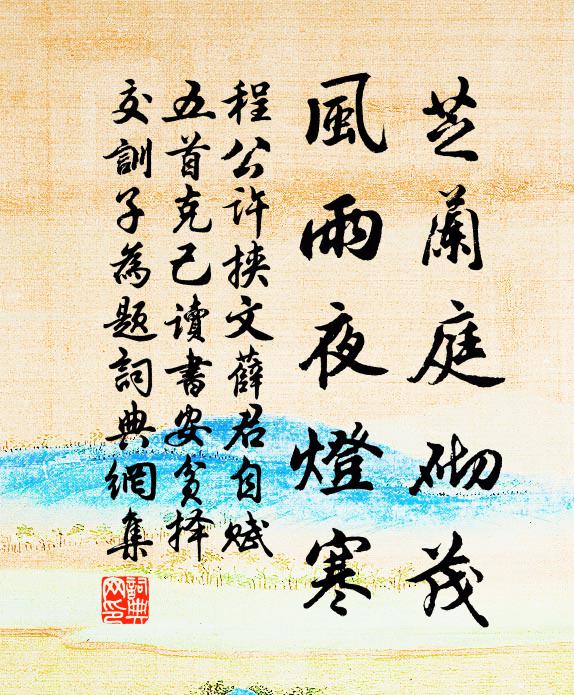 芝蘭庭砌茂
風雨夜燈寒
程公许挟文薛君自赋
五首克己读書安貧择
交訓子為题詞典網集
詞典網印